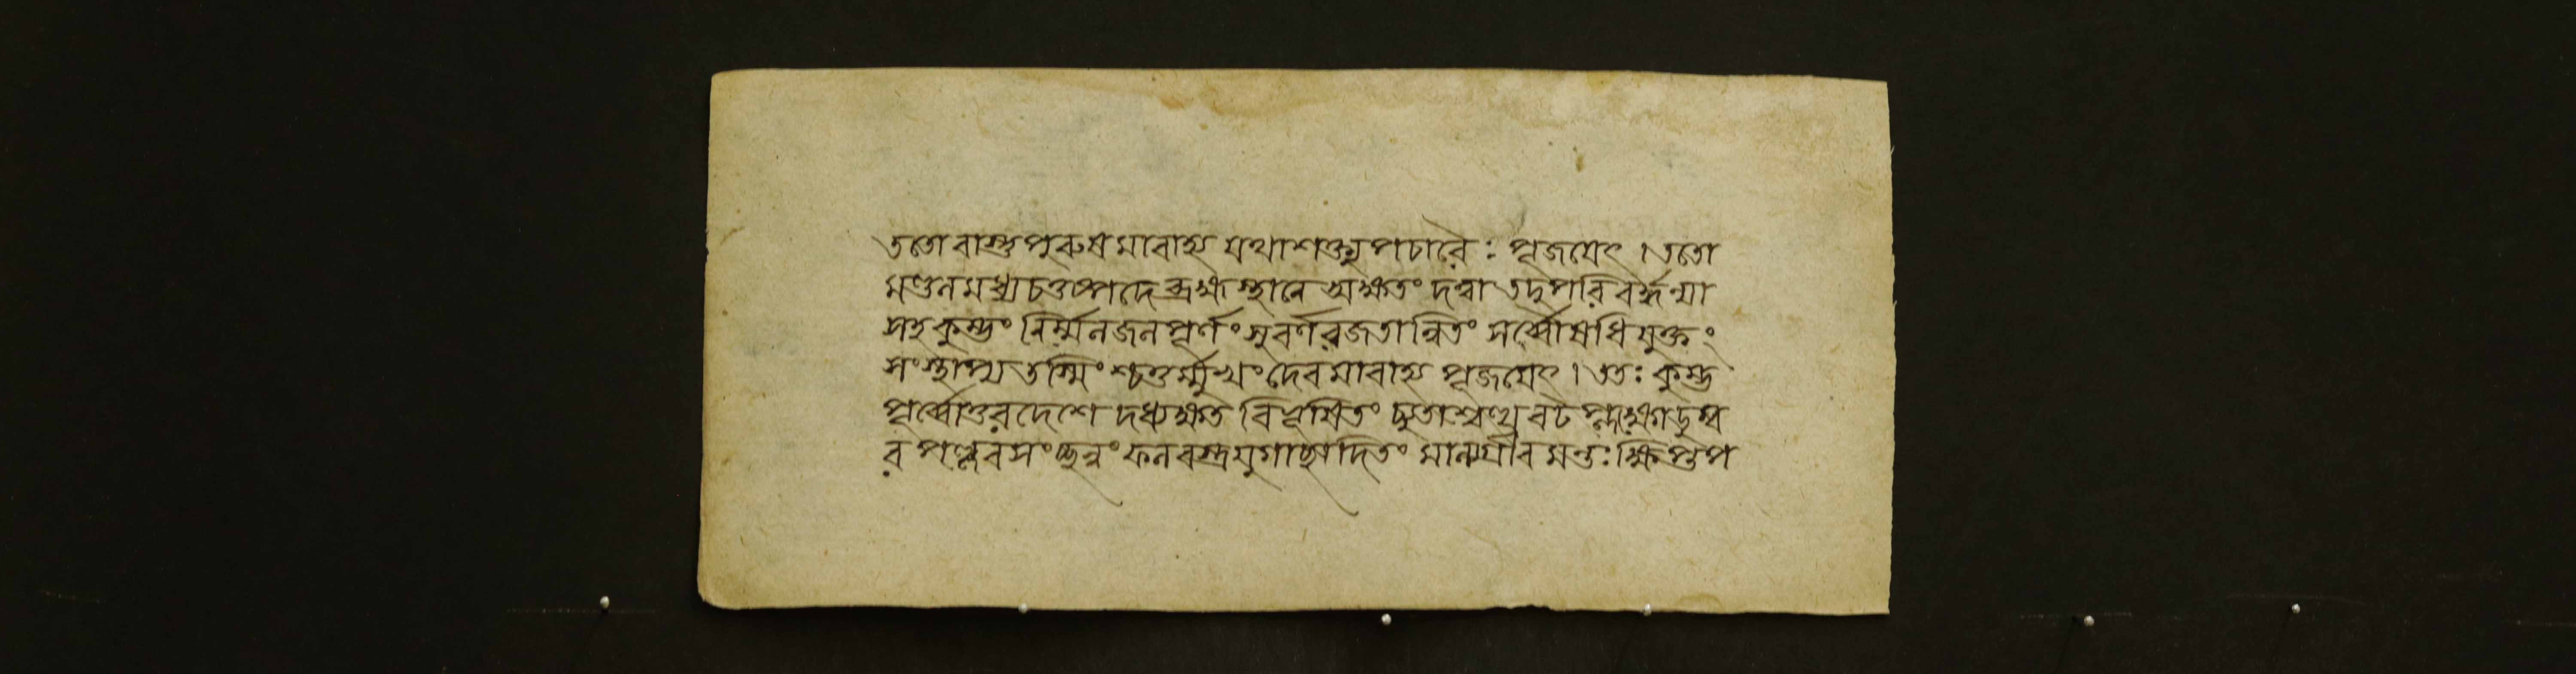 ততো বাস্তুপুরুষমাবাহ্য যথাশক্ত্যুপচারৈঃ পূজয়েৎ । ততো
মণ্ডলমধ্যচতুষ্পদে ব্রহ্মস্থানে অক্ষতং দত্বা তদুপরি বর্দ্ধন্যা
সহ কুম্ভং নির্ম্মলজলপূর্ণং সুবর্ণরজতান্বিতং সর্ব্বৌষধিযুক্তং
সংস্থাপ্য তস্মিংশ্চতুর্ম্মুখং দেবমাবাহ্য পূজয়েৎ । ততঃ কুম্ভ
পূর্ব্বোত্তরদেশে দধ্যক্ষত বিভূষিতং চূতাশ্বত্থ বট প্লক্ষোডুম্ব
র পল্লবসংচ্ছন্নং ফলবস্ত্রযুগাচ্ছাদিতং মাল্য